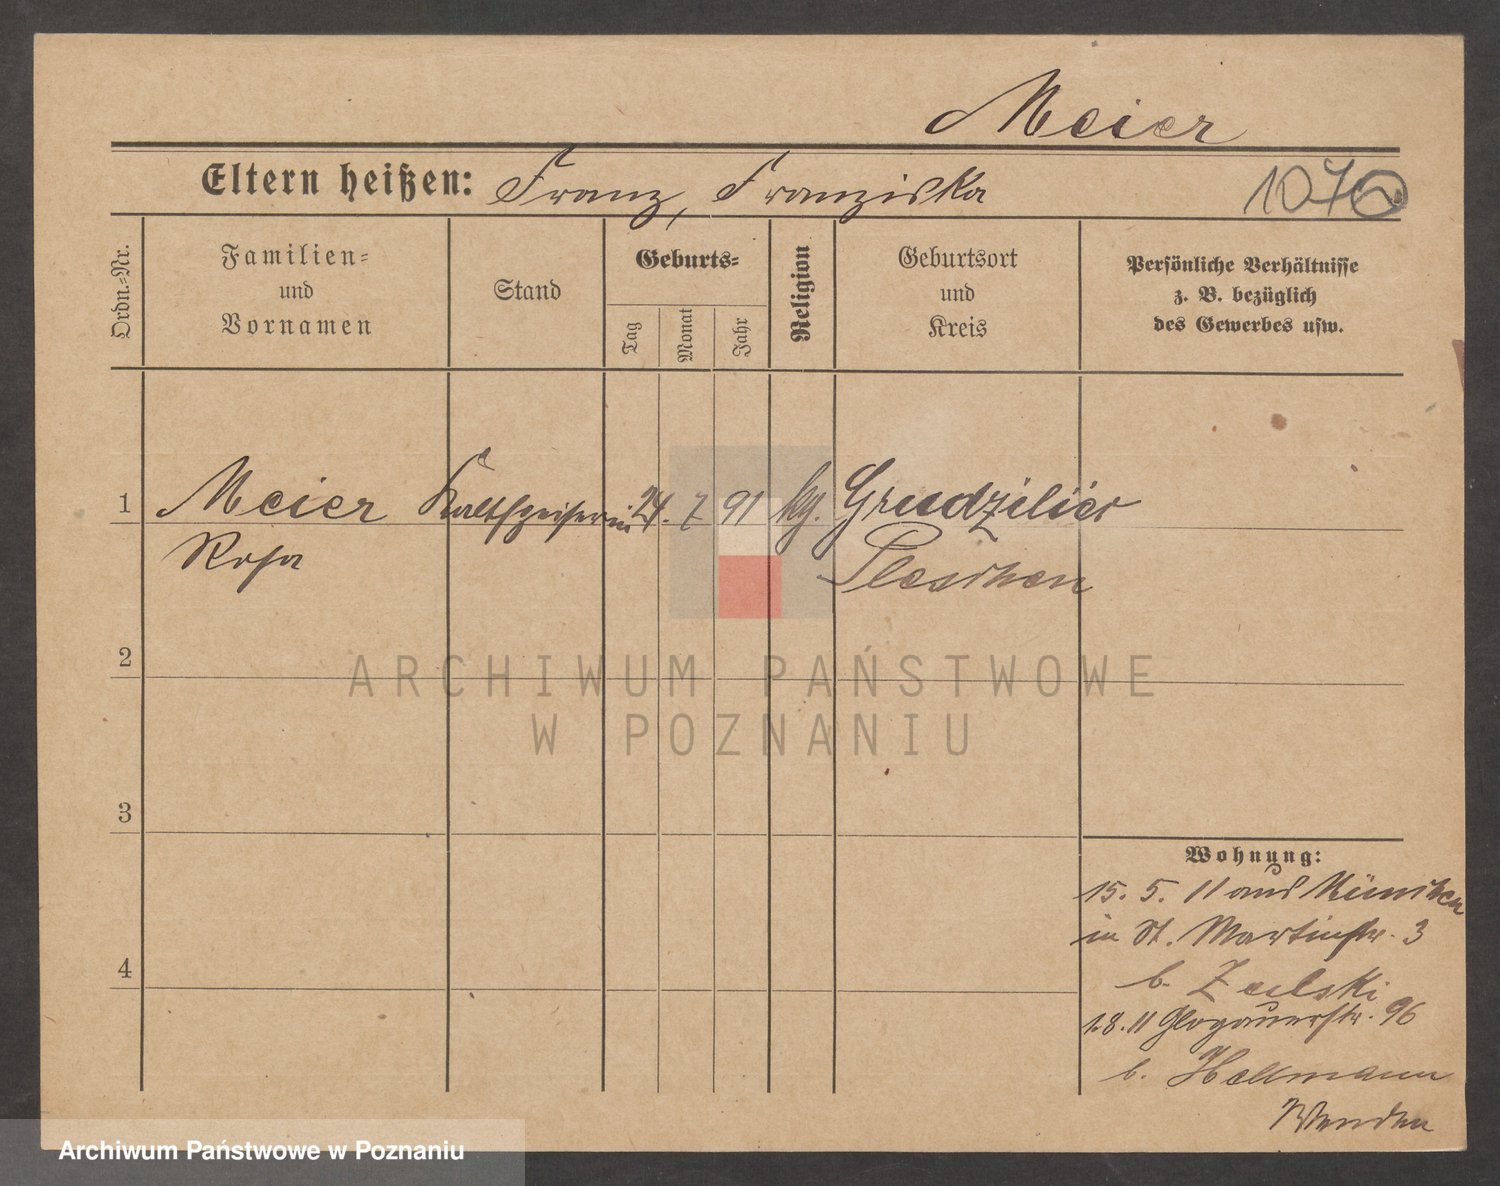 Meier
Eltern heißen: Franz, Franziska
1076
Ordn.-Nr.
Familien-
und
Vornamen
Stand
Geburts-
Tag
Monat
Jahr
Religion
Geburtsort
und
Kreis
Persönliche Verhältnisse
z. B. bezüglich
des Gewerbes usw.
1 Meier 24. 7 91 kg.
Rosa Pleschen
2
3
4
Wohnung:
15. 5. 11 aus München
in St. Martinstr. 3
b. Zielski
1.8.11 Glogauerstr. 96
b. Hellmann
Wenden
ARCHIWUM PAŃSTWOWE
W POZNANIU
Archiwum Państwowe w Poznaniu